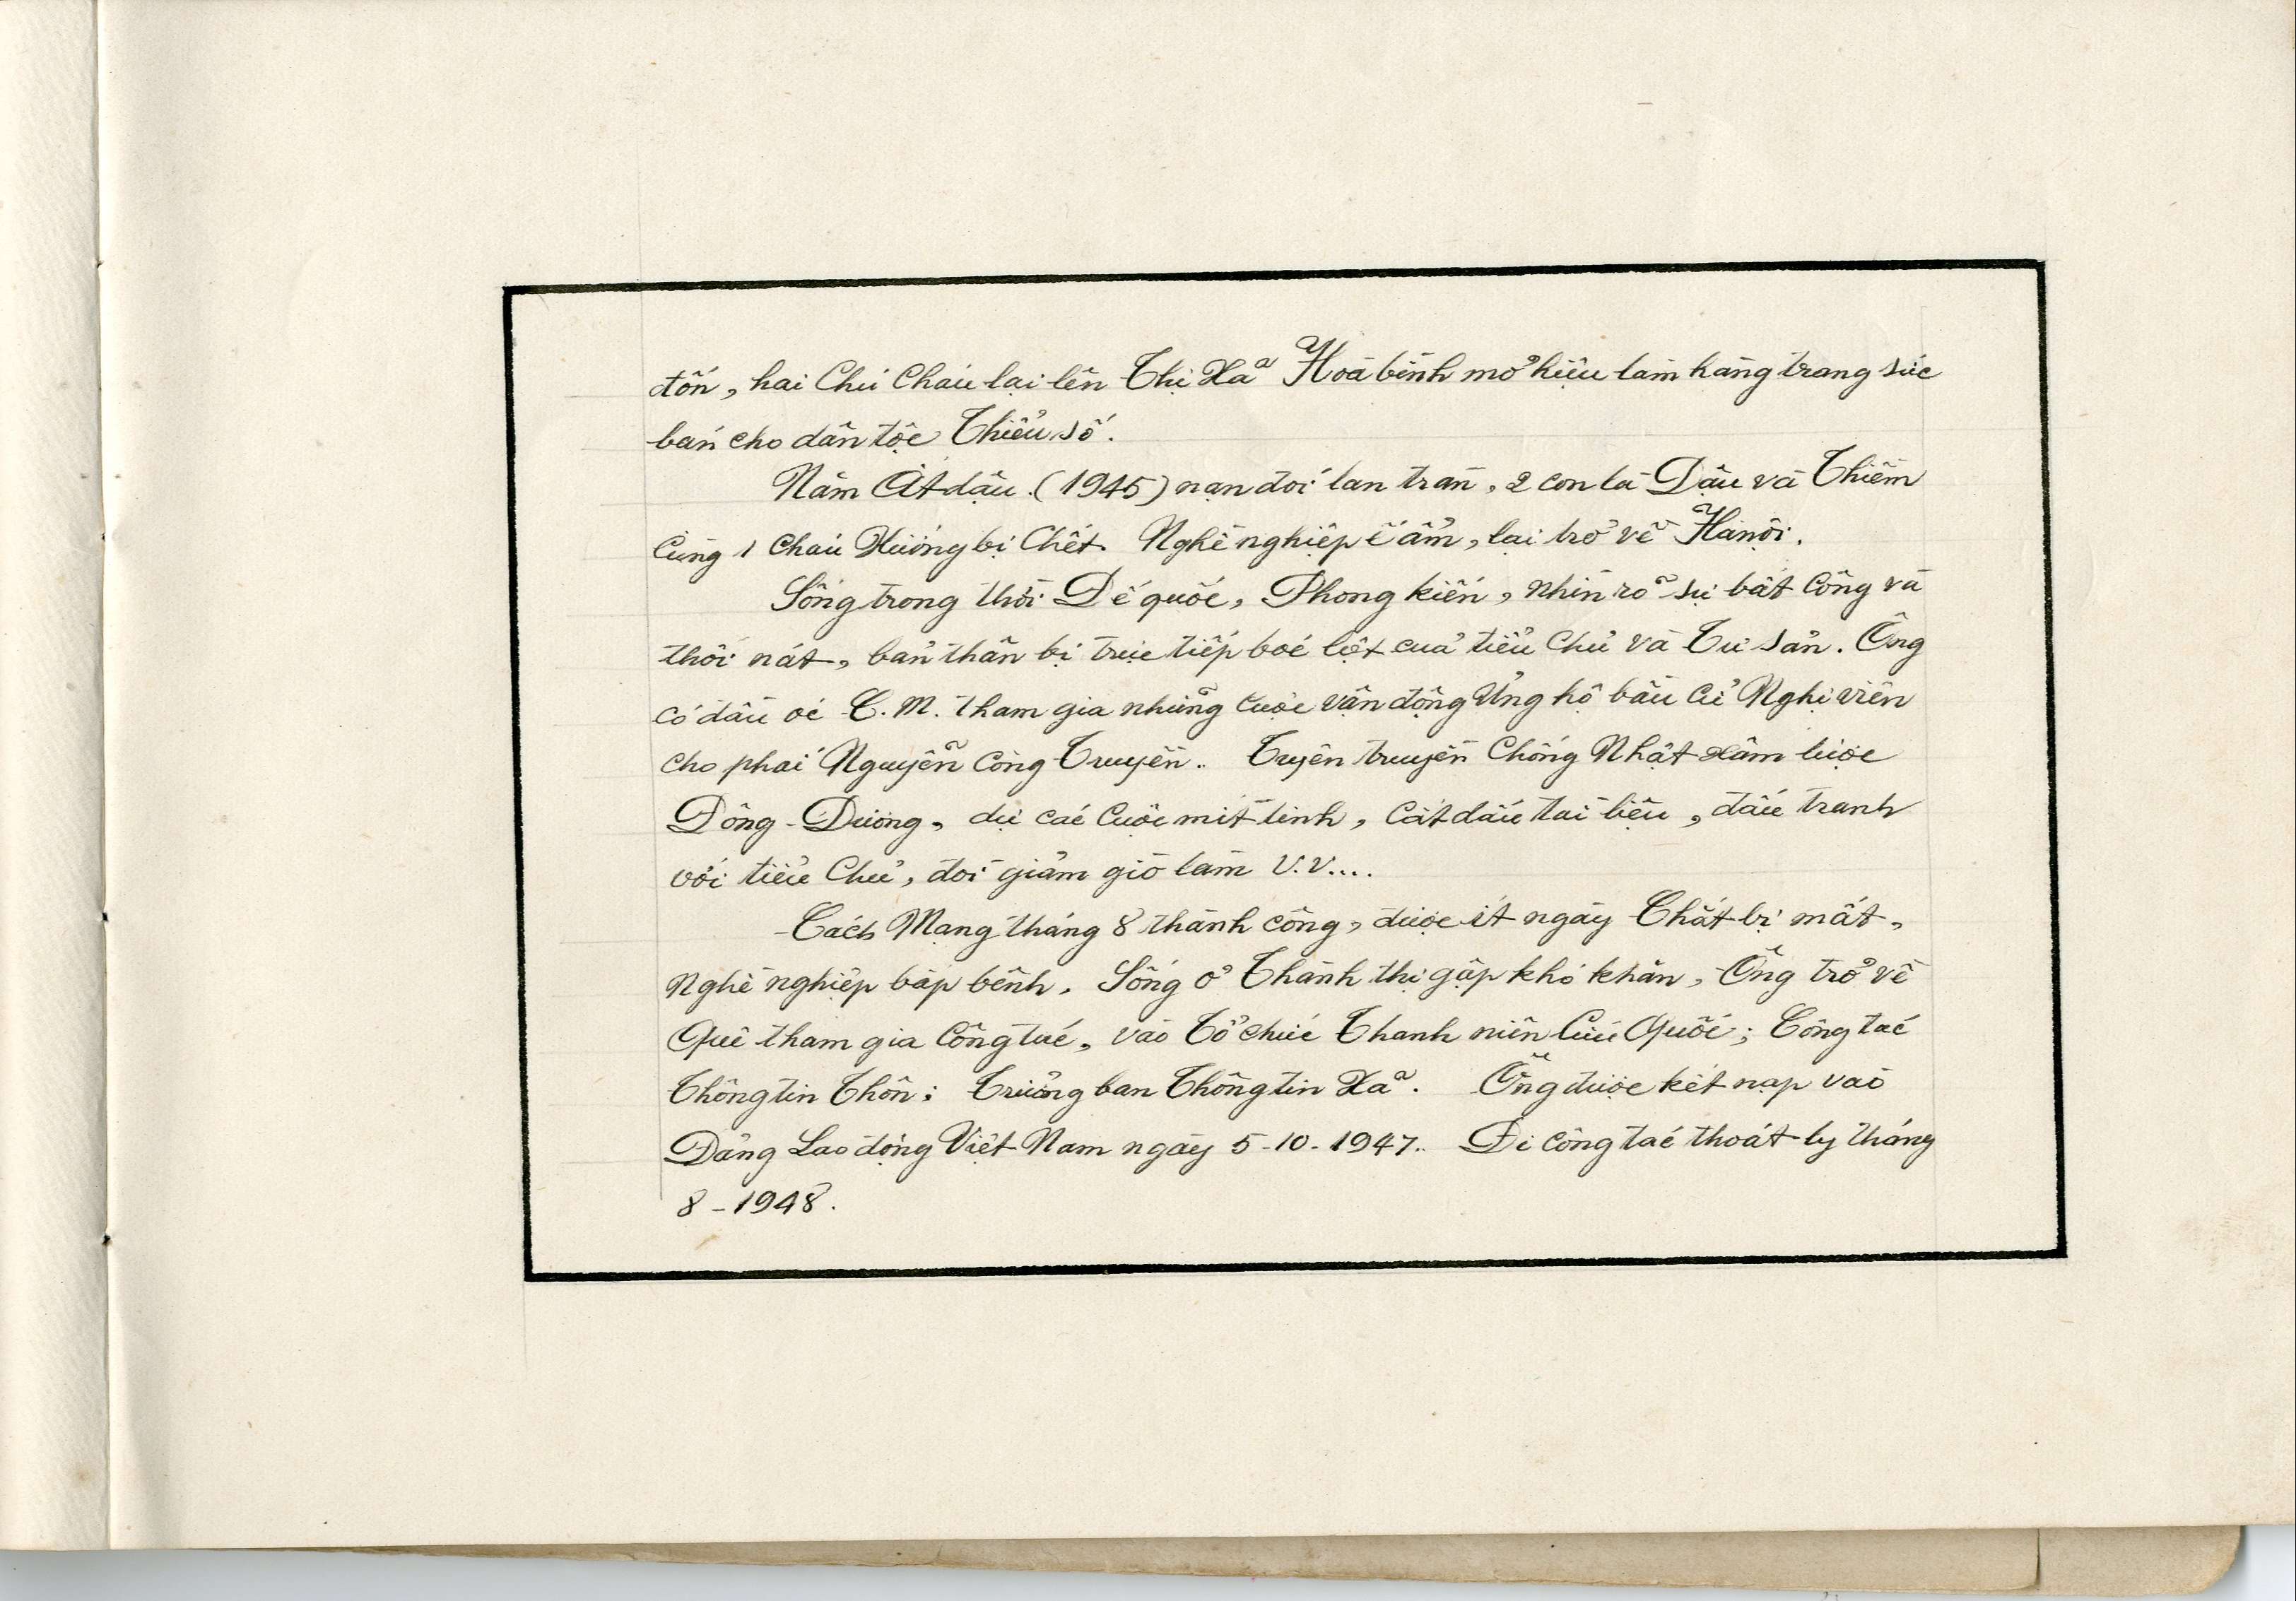 đốn, hai Chú Cháu lại lên Thị Xã Hoà bình mở hiệu làm hàng trang sức
bán cho dân tộc Thiểu số.
Năm Ất dậu (1945) nạn đói lan tràn, 2 con là Dậu và Thiêm
Cùng 1 Cháu Hương bị Chết. Nghề nghiệp ế ẩm, lại trở về Hà nội.
Sống trong thời Đế quốc, Phong kiến, nhìn rõ sự bất Công và
thối nát, bản thân bị trực tiếp bóc lột của tiểu Chủ và Tư sản. Ông
có đầu óc C.M. tham gia những Cuộc vận động Ủng hộ bầu Cử Nghị viên
cho phái Nguyễn Công Truyền. Tuyên truyền Chống Nhật xâm lược
Đông-Dương, dự các Cuộc mít tinh, Cất dấu tài liệu, đấu tranh
với tiểu Chủ, đòi giảm giờ làm V.V....
Cách Mạng tháng 8 thành công, được ít ngày Chất bị mất,
Nghề nghiệp bấp bênh. Sống ở Thành thị gặp khó khăn, Ông trở về
Quê tham gia Công tác, vào Tổ chức Thanh niên Cứu Quốc; Công tác
Thông tin Thôn; Trưởng ban Thông tin Xã. Ông được kết nạp vào
Đảng Lao động Việt Nam ngày 5-10-1947. Đi công tác thoát ly tháng
8-1948.